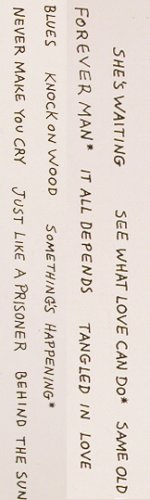 SHE'S WAITING SEE WHAT LOVE CAN DO* SAME OLD
BLUES KNOCK ON WOOD SOMETHING'S HAPPENING*
FOREVER MAN* IT ALL DEPENDS TANGLED IN LOVE
NEVER MAKE YOU CRY JUST LIKE A PRISONER BEHIND THE SUN